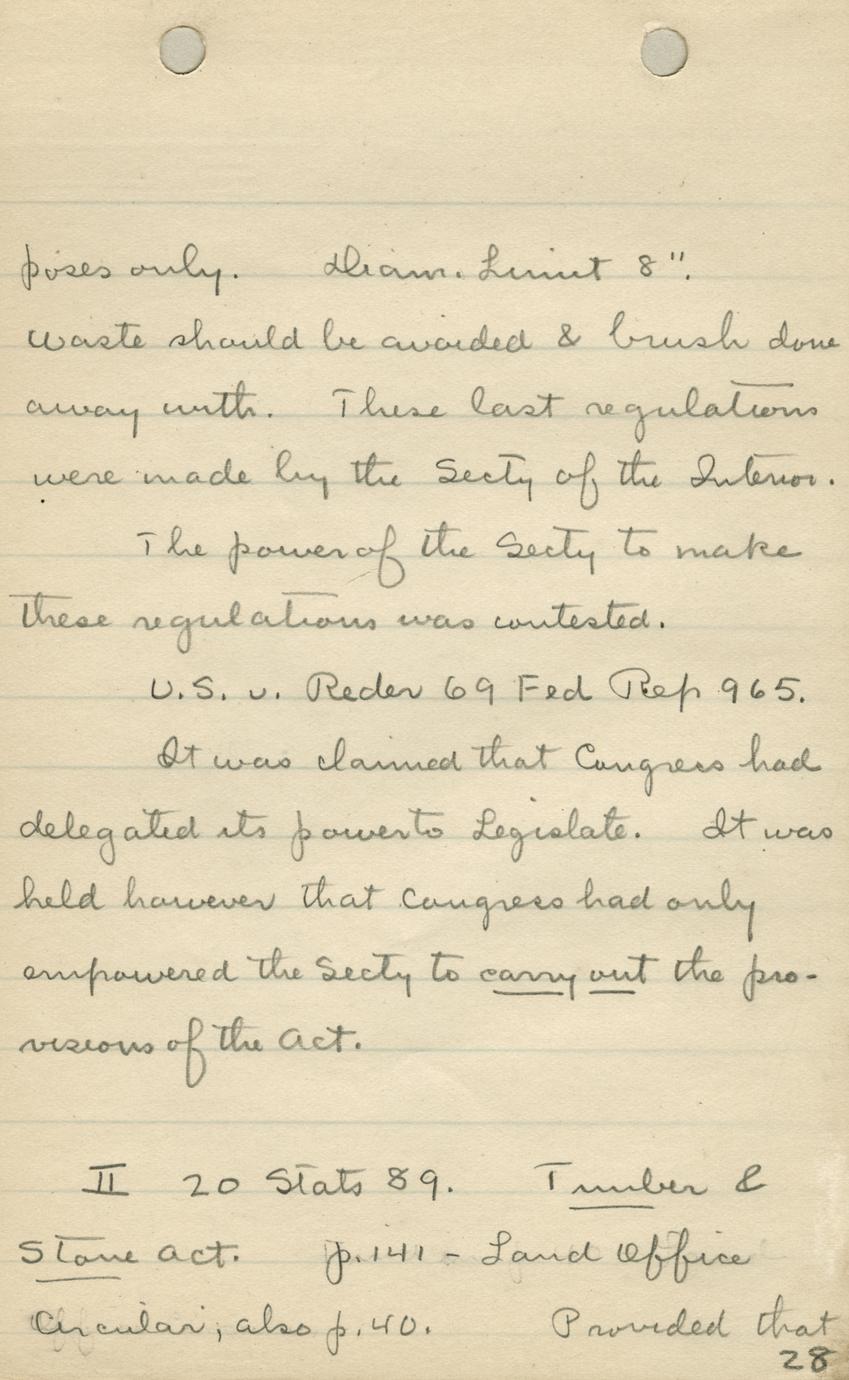 poses only. Diam. Limit 8".
waste should be avoided & brush done
away with. These last regulations
were made by the Secty of the Interior.
The power of the Secty to make
these regulations was contested.
U.S. v. Reder 69 Fed Rep 965.
It was claimed that Congress had
delegated its power to Legislate. It was
held however that Congress had only
empowered the Secty to carry out the pro-
visions of the Act.
II 20 Stats 89. Timber &
Stone Act. p. 141 - Land Office
Circular, also p. 40. Provided that
28